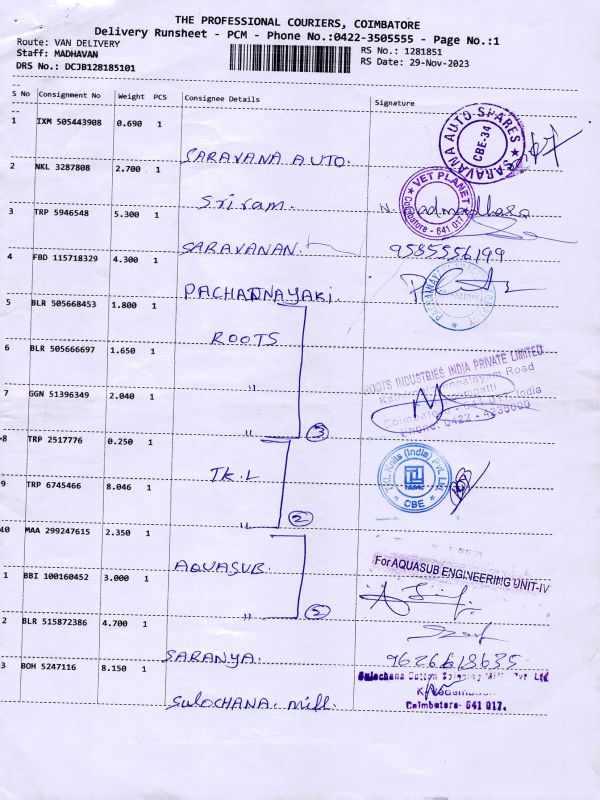 THE PROFESSIONAL COURIERS, COIMBATORE
Delivery Runsheet - PCM - Phone No.:0422-3505555 - Page No.:1
Route: VAN DELIVERY
RS No.: 1281851
Staff: MADHAVAN
RS Date: 29-Nov-2023
DRS No.: DCJB128185101
S No Consignment No Weight PCS Consignee Details Signature
1 IXM 505443908 0.690 1
SARAVANA AUTO.
SARAVANA AUTO SPARES
CBE-34
2 NKL 3287808 2.700 1
Sriram.
VET PLANET
Coimbatore - 641 017
3 TRP 5946548 5.300 1
SARAVANAN.
9585556199
4 FBD 115718329 4.300 1
PACHAINAYAKI.
5 BLR 505668453 1.800 1
ROOTS
6 BLR 505666697 1.650 1
"
ROOTS INDUSTRIES INDIA PRIVATE LIMITED
7 GGN 51396349 2.040 1
"
3
Phone: 0422 - 4235000
8 TRP 2517776 0.250 1
TK.L
T.K.L Knits (India) Pvt Ltd
CBE
9 TRP 6745466 8.046 1
"
2
10 MAA 299247615 2.350 1
AQUASUB.
For AQUASUB ENGINEERING UNIT-IV
1 BBI 100160452 3.000 1
"
2
2 BLR 515872386 4.700 1
SARANYA.
9626618635
3 BOH 5247116 8.150 1
SULOCHANA. mill.
Sulochana Cotton Spinning Mill Pvt Ltd
Coimbatore- 641 017.